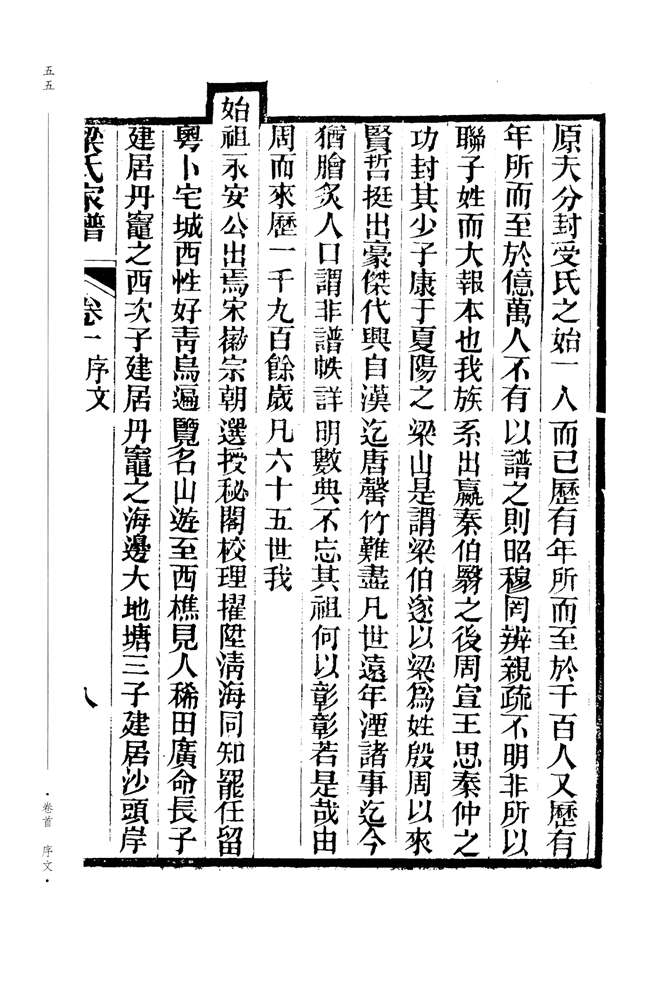 原夫分封受氏之始一人而已歷有年所而至於千百人又歷有
年所而至於億萬人不有以譜之則昭穆罔辨親疏不明非所以
聯子姓而大報本也我族系出嬴秦伯翳之後周宣王思秦仲之
功封其少子康于夏陽之梁山是謂梁伯遂以梁爲姓殷周以來
賢哲挺出豪傑代興自漢迄唐罄竹難盡凡世遠年湮諸事迄今
猶膾炙人口謂非譜帙詳明數典不忘其祖何以彰彰若是哉由
周而來歷一千九百餘歲凡六十五世我
始祖永安公出焉宋徽宗朝選授秘閣校理擢陞清海同知罷任留
粵卜宅城西性好靑烏遍覽名山遊至西樵見人稀田廣命長子
建居丹竈之西次子建居丹竈之海邊大地塘三子建居沙頭岸
梁氏家譜 卷一序文 八
五五
·卷首 序文·